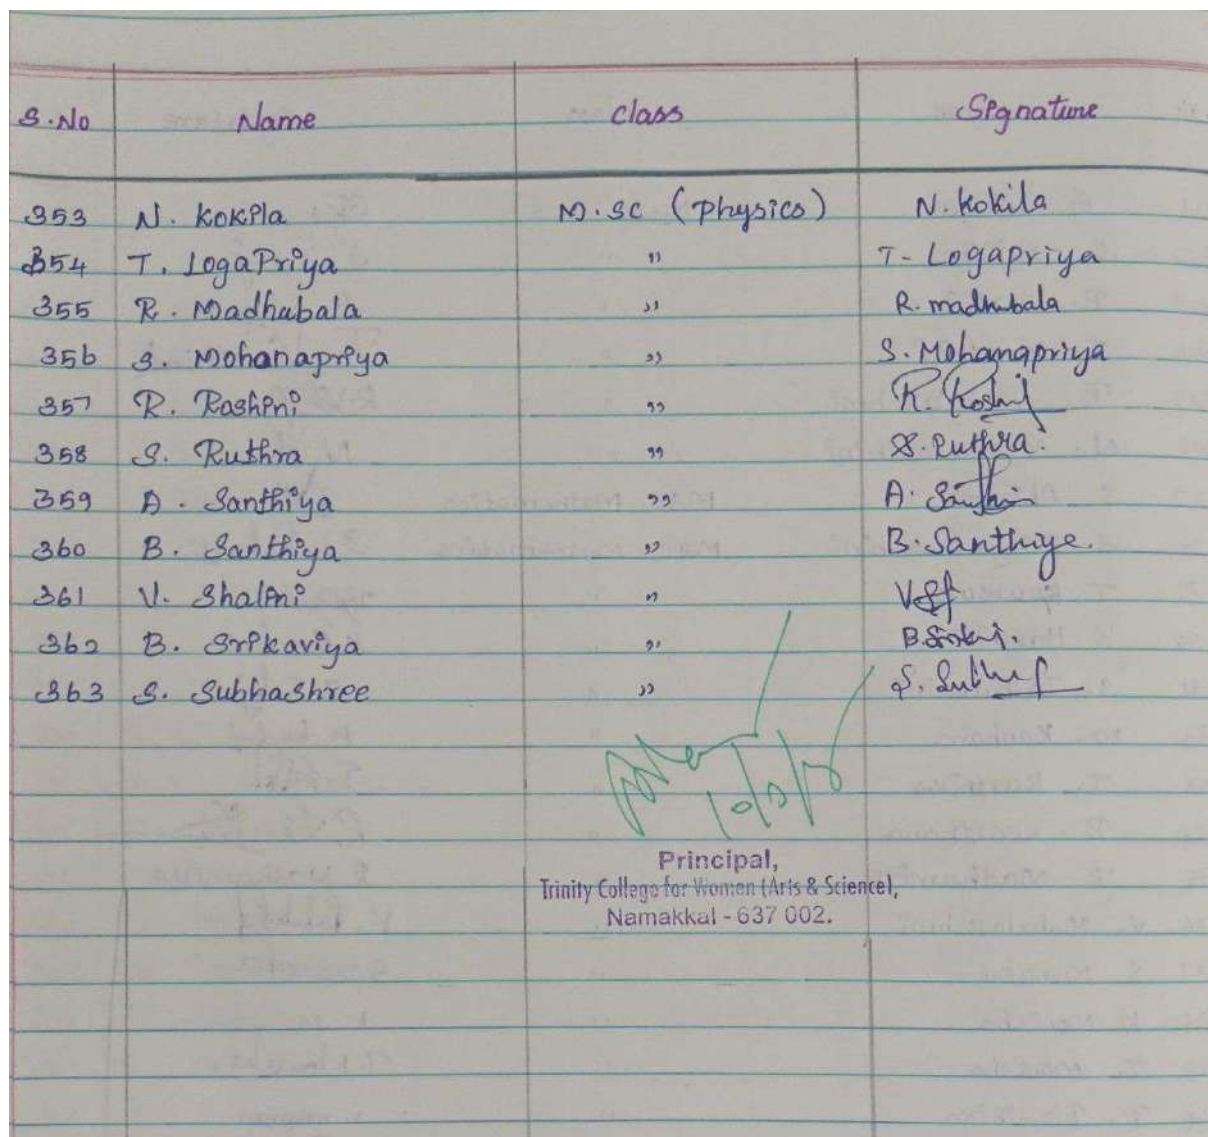 S.No Name Class Signature
353 N. Kokila M.Sc (Physics) N. Kokila
354 T. LogaPriya " T. Logapriya
355 R. Madhubala " R. Madhubala
356 S. Mohanapriya " S. Mohanapriya
357 R. Roshini " R. Roshini
358 S. Ruthra " S. Ruthra
359 A. Santhiya " A. Santhi
360 B. Santhiya " B. Santhiya
361 V. Shalini "
362 B. Srikaviya "
363 S. SubhaShree "
Principal,
Trinity College for Women (Arts & Science),
Namakkal - 637 002.